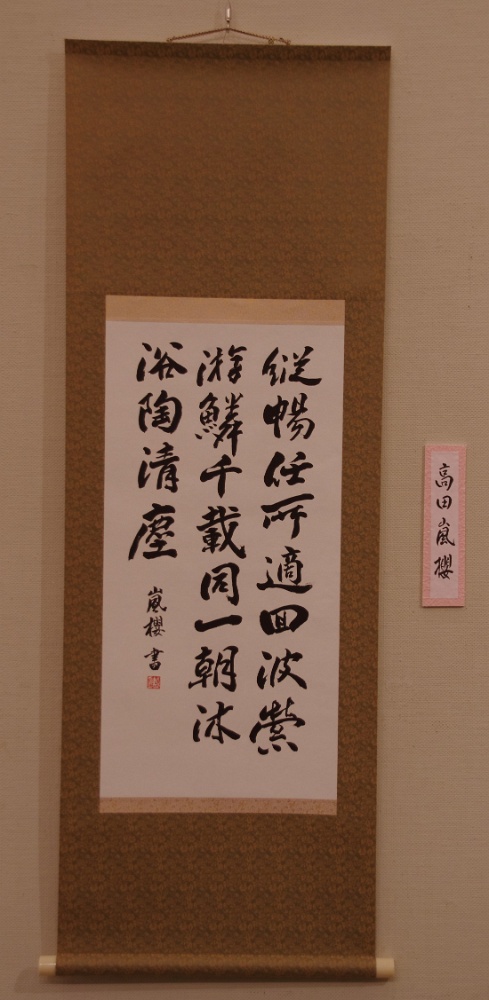 縦暢任所適回波縈
游鱗千載同一朝沐
浴陶清塵
嵐櫻書
高田嵐櫻